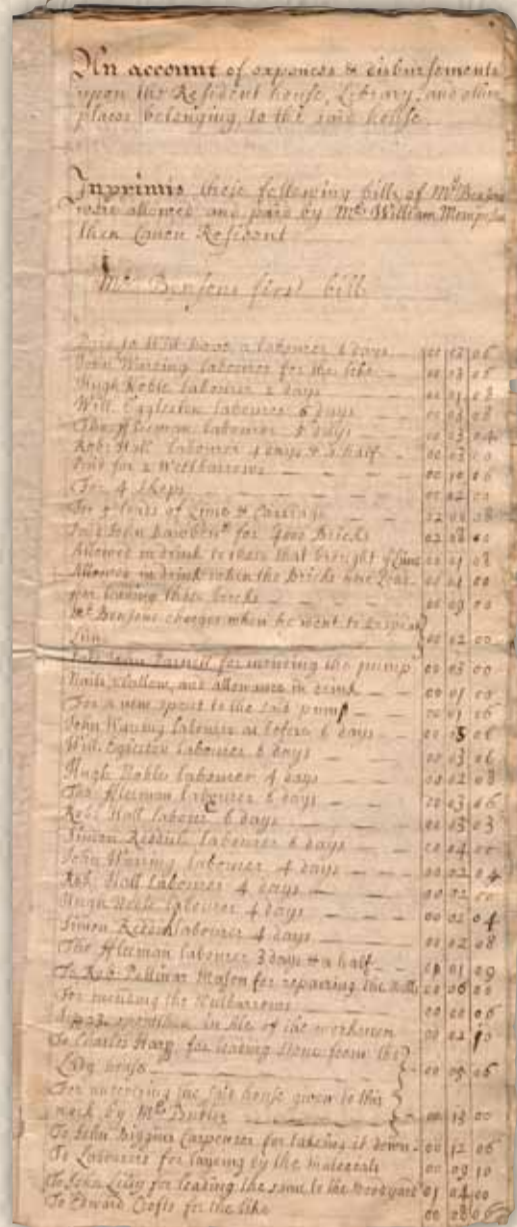 An account of expences & disbursements
upon the Resident house, Library, and other
places belonging to the said house
Inprimis these following bills of Mr Bensons
were allowed and paid by Mr William Mompesson
then Canon Resident
Mr Bensons first bill
a labourer 6 days 00 03 06
John Wareing labourer for the like 00 03 06
Hugh Noble labourer 2 days 00 01 08
Will. Eggleston labourer 6 days 00 03 08
Tho: Aleeman labourer 5 days 00 03 04
Rob: Hall labourer 4 days & a half 00 03 00
Paid for 2 Wellbarrows 00 10 06
For 4 00 02 00
For 5 loads of Lime & Carriage 02 08
Paid John for 4000 Bricks 02 08 00
Allowed in drink to those that brought ye Lime 00 01 08
Allowed in drink when the Bricks were 00 01 00
for leading those bricks 00 09 00
Mr Bensons charges when he went to
Lime 00 02 00
Paid John Parnell for mending the pump 00 03 00
Nails, tallow, and allowance in drink 00 01 00
For a new spout to the said pump 00 01 06
John Waring labourer as before 6 days 00 3 06
Will Egleston labourer 6 days 00 03 06
Hugh Noble labourer 4 days 00 02 08
Tho: Aleeman labourer 6 days 00 03 06
Rob: Hall labourer 6 days 00 03 03
Simon labourer 6 days 00 04 00
John Waring labourer 4 days 00 02 04
Rob: Hall labourer 4 days 00 02 00
Hugh Noble labourer 4 days 00 02 04
Simon labourer 4 days 00 02 08
Tho Aleeman labourer 3 days & a half 00 01 09
To Rob: Mason for repairing the Walls 00 06 00
For mending the Wilbarrows 00 00 06
in Ale of the workmen 00 02 10
To Charles Harp, for leading stone from the
Lady house 00 09 06
For the said house given to this
work by Mrs Butler 00 13 00
To John Biggins Carpenter for takeing it down 00 12 06
To Labourers for laying by the materials 00 09 10
To John Lilly for leading the same to the Woodyard 01 04 00
To Edward Crofts for the like 00 08 06